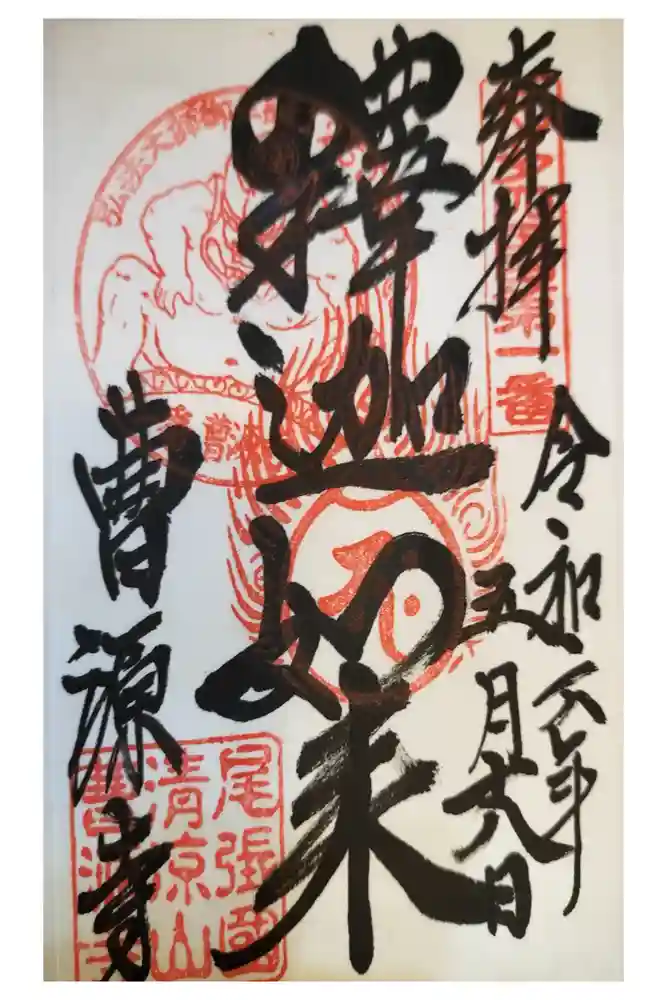 奉拝
第一番
令和六年
五月十八日
釋迦如来
弘法大師
曹源寺
尾張國
清涼山
曹源寺